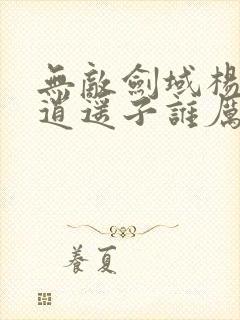 無敵劍域楊
逍遥子誰厲
養夏